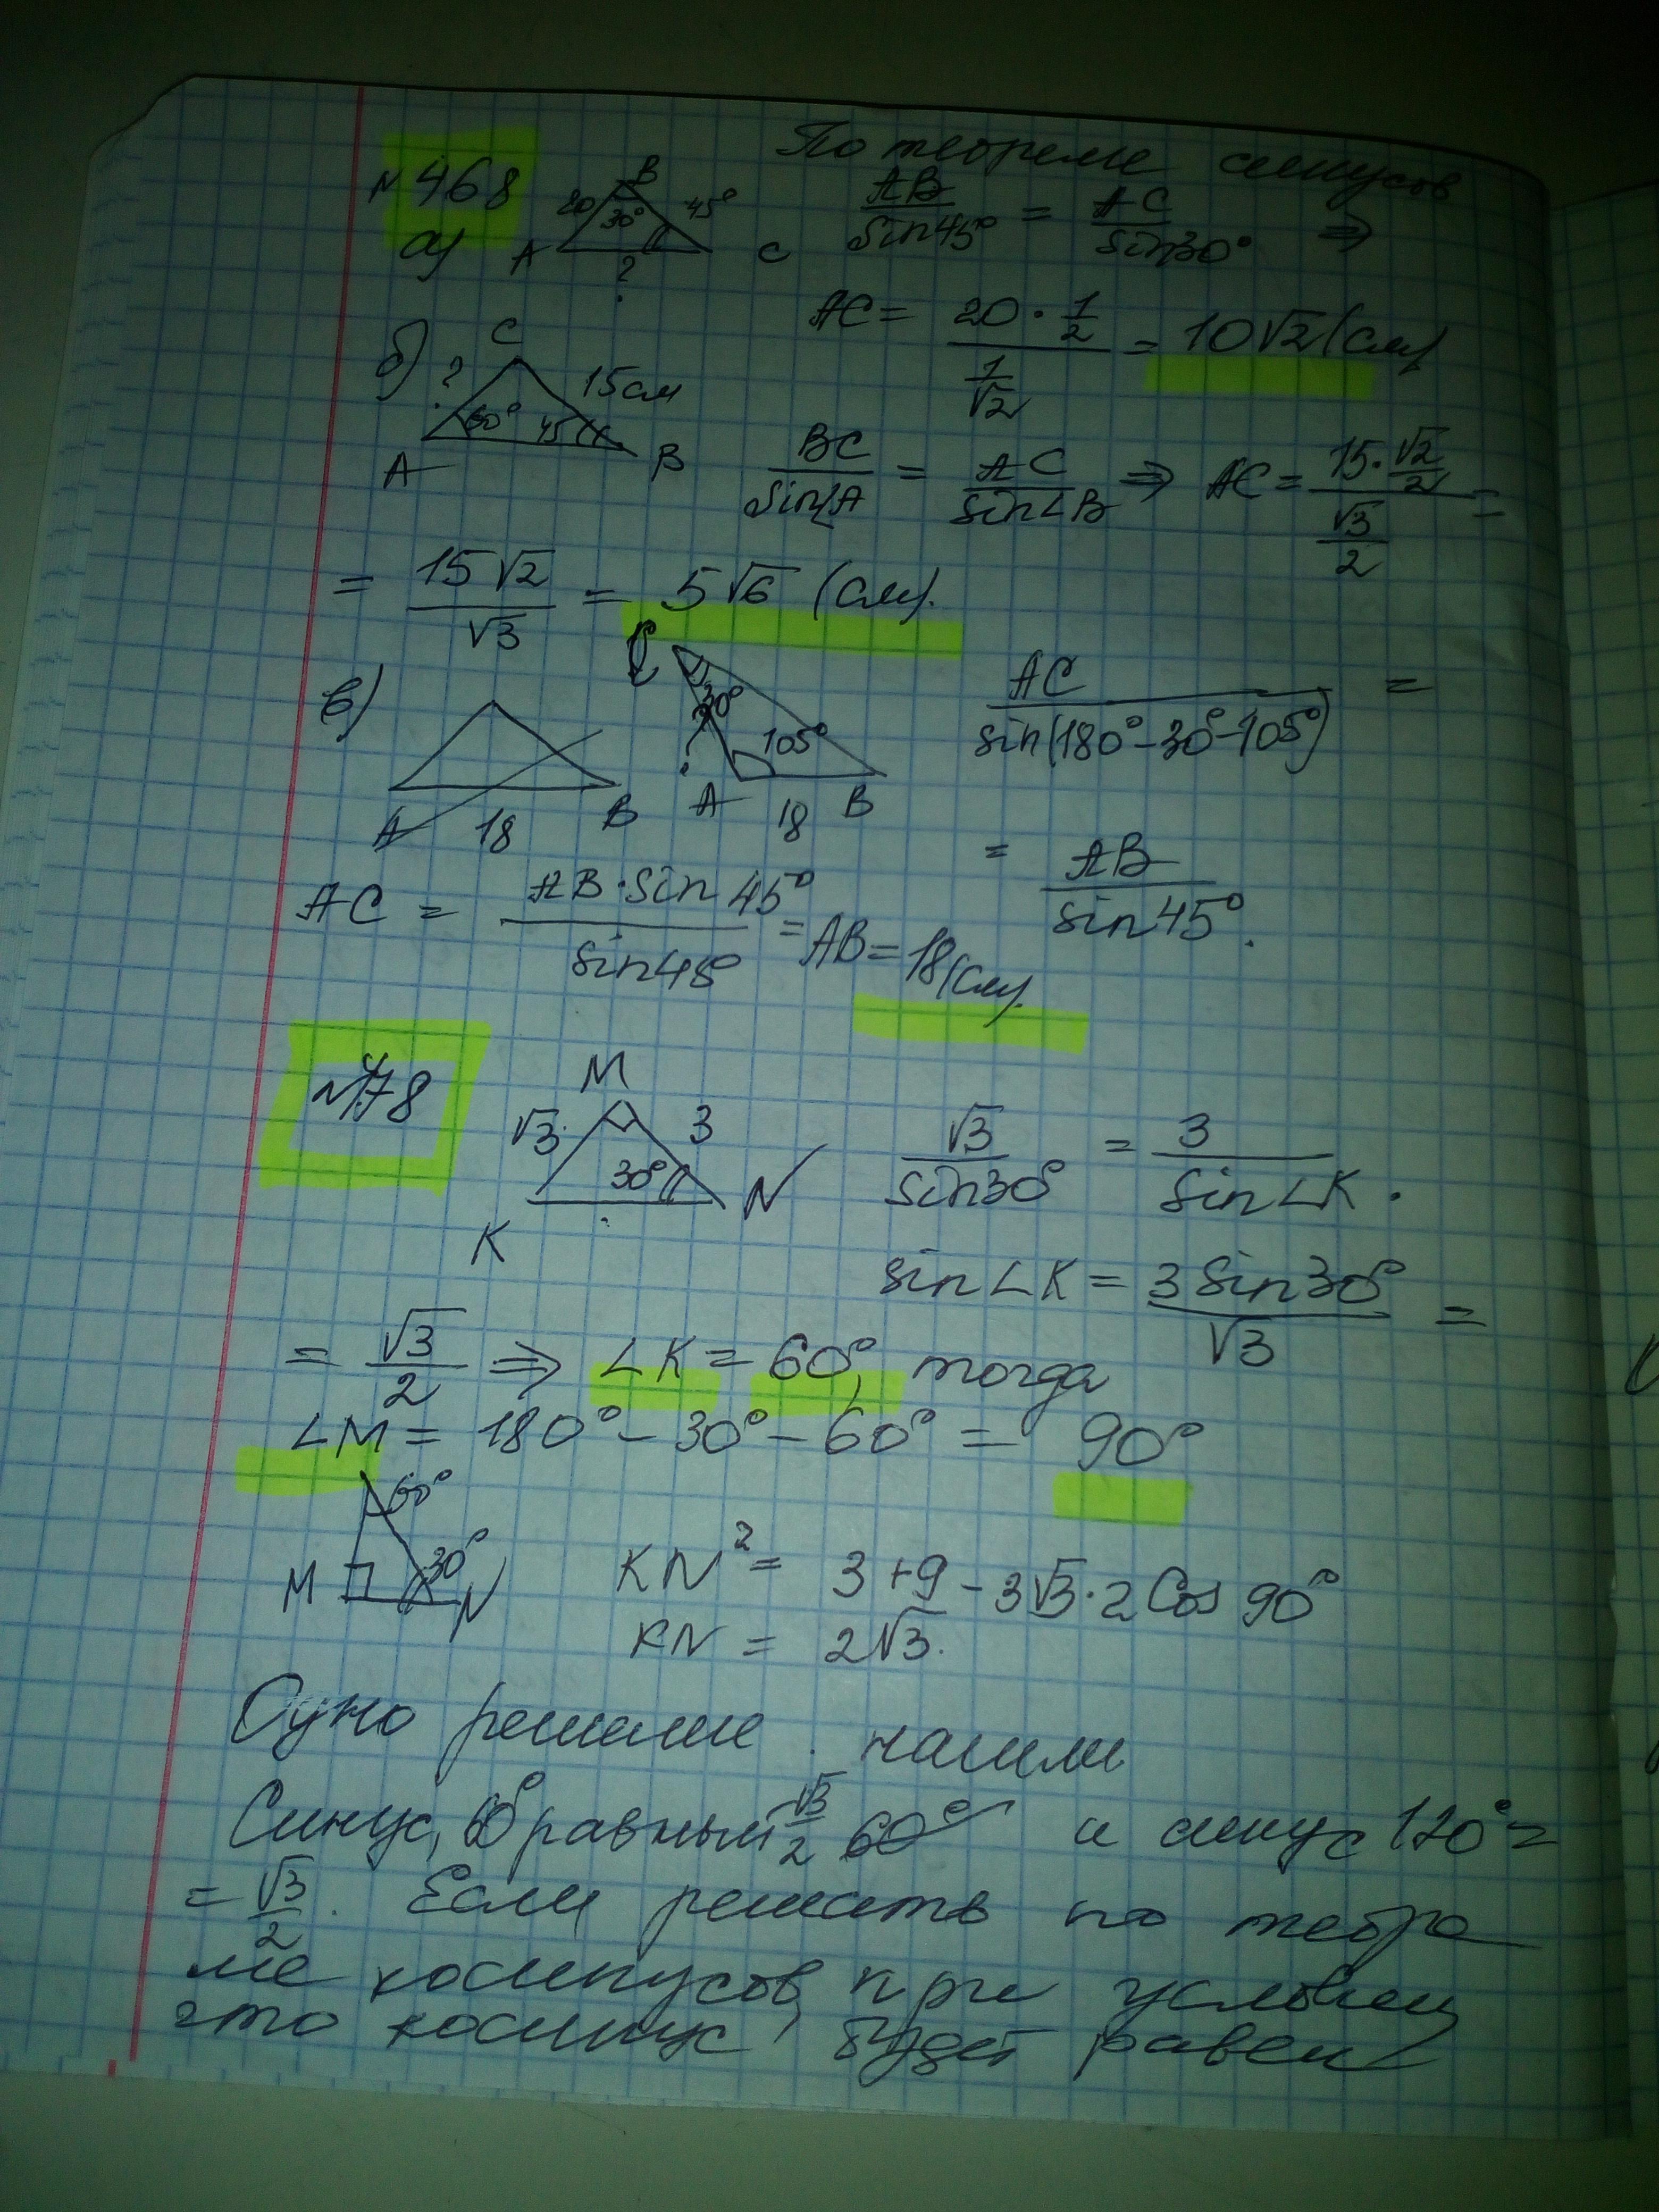 По теореме синусов
№468
а) A B C 20 30° 45° ?
AB/sin45° = AC/sin30° ⇒
AC = (20 · 1/2)/(1/√2) = 10√2 (см)
б) ? C 15см 60° 45 A B
BC/sin∠A = AC/sin∠B ⇒ AC = (15·√2/2)/(√3/2) =
= 15√2/√3 = 5√6 (см).
в) A 18 B
C 30° ? 105° A 18 B
AC/sin(180°-30°-105°) =
= AB/sin45°.
AC = AB·sin45°/sin45° = AB = 18 (см).
№478
M √3 3 30° K N
√3/sin30° = 3/sin∠K.
sin∠K = 3sin30°/√3 =
= √3/2 ⇒ ∠K = 60°, тогда
∠M = 180° - 30° - 60° = 90°
60° 30° M N
KN² = 3 + 9 - 3√3·2Cos90°
KN = 2√3.
Одно решение нашли
Синус, равный √3/2 60° и синус 120° =
= √3/2. Если решать по теоре
ме косинусов, при условии,
что косинус будет равен